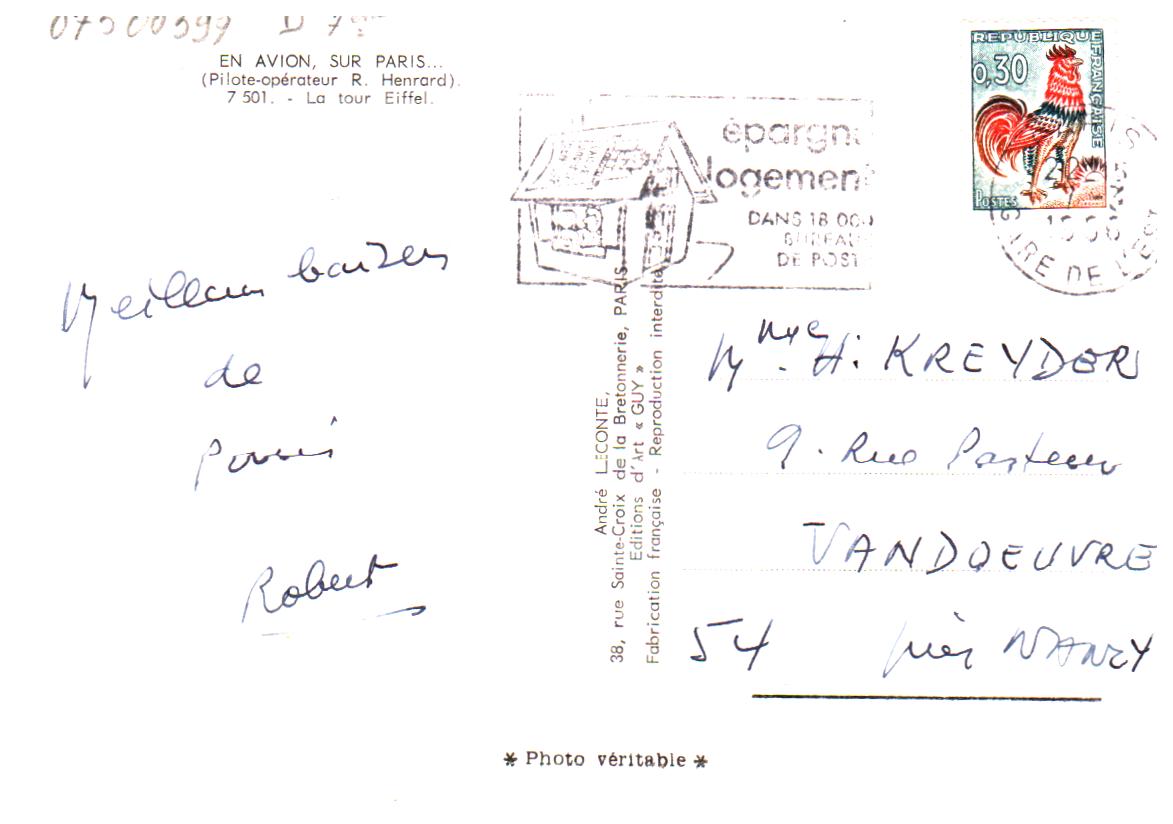 EN AVION, SUR PARIS...
(Pilote-opérateur R. Henrard).
7 501. - La tour Eiffel.
REPUBLIQUE FRANÇAISE
0,30
POSTES
épargne
logement
DANS 18 000
BUREAUX
DE POSTE
GARE DE L'EST
Meilleurs baisers
de
Paris
Robert
André LECONTE,
38, rue Sainte-Croix de la Bretonnerie, PARIS
Editions d'Art « GUY »
Fabrication française - Reproduction interdite
Mme H. KREYDER
9. Rue Pasteur
VANDOEUVRE
54 près NANCY
* Photo véritable *